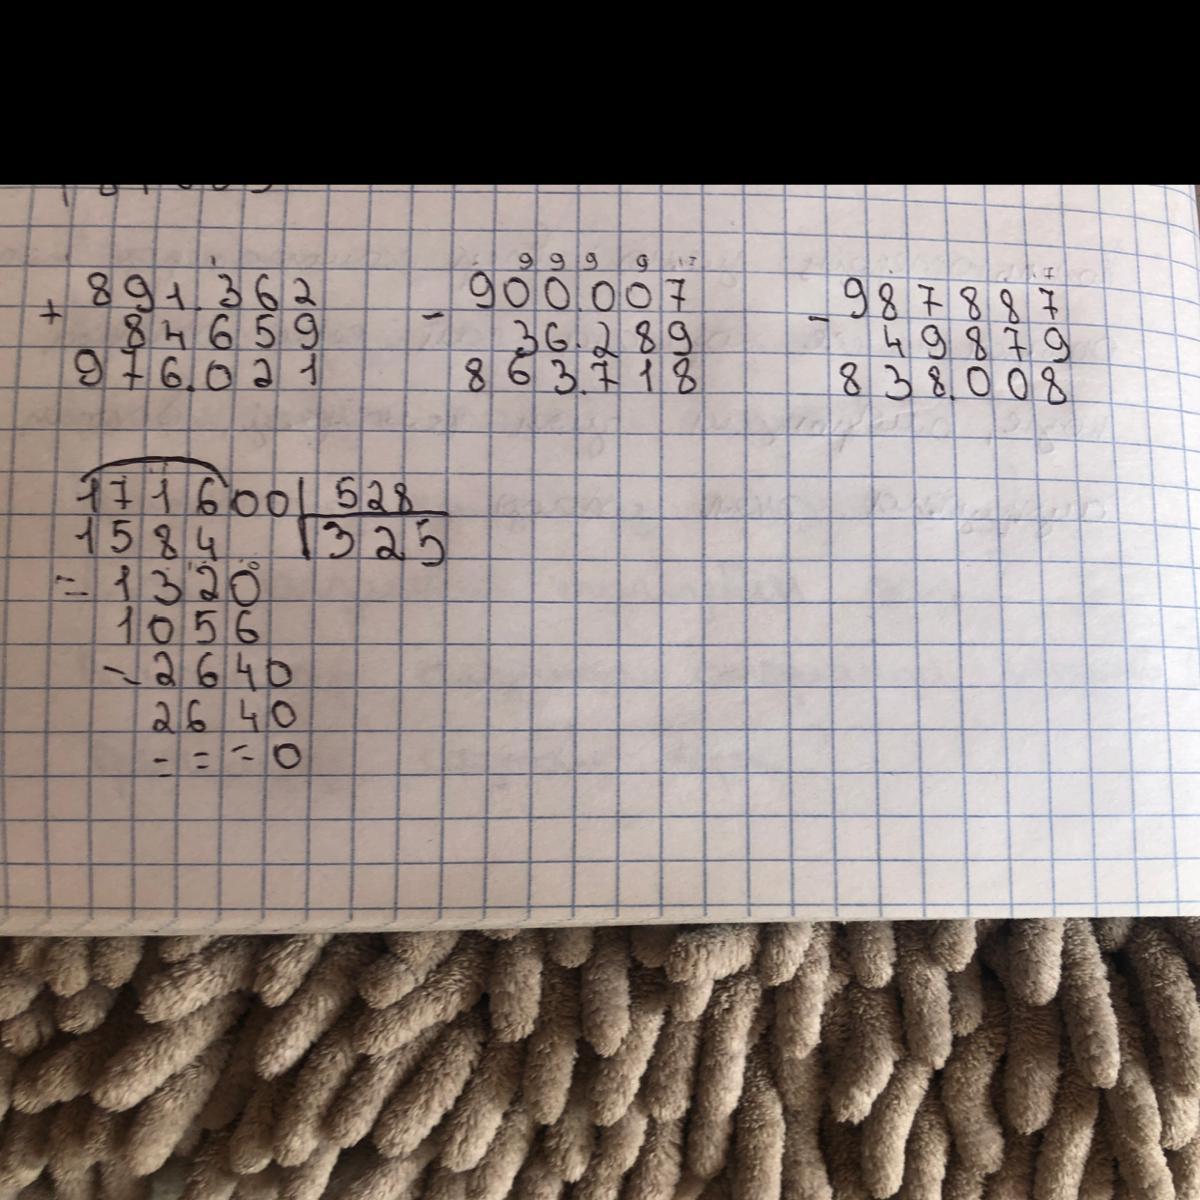 + 891.362
84659
976.021
- 900.007
36.289
863.718
- 987887
49879
838.008
171600 | 528
1584 | 325
= 1320
1056
- 2640
2640
- = = 0